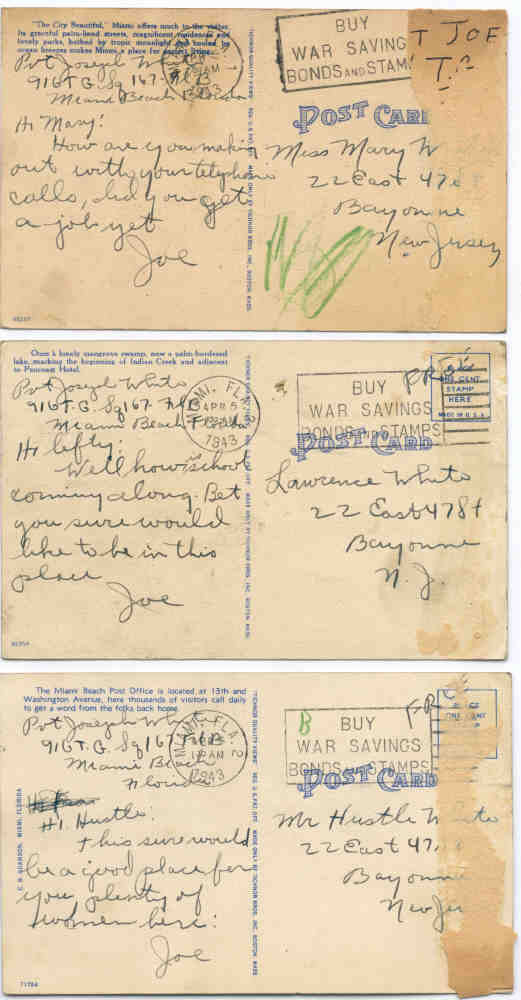 "The City Beautiful," Miami offers much to the visitor.
Its graceful palm-lined streets, magnificent residences and
lovely parks, bathed by tropic moonlight and cooled by
ocean breezes makes Miami a place for
Pvt Joseph W
916 T.G. Sq 167- Fl B
Miami Beach Florida
1943
BUY
WAR SAVINGS
BONDS AND STAM
T JOE
POST CARD
Hi Mary!
How are you making
out with your telephone
calls, did you get
a job yet
Joe
Miss Mary W
22 East 47
Bayonne
New Jersey
TICHNOR QUALITY VIEWS REG. U.S. PAT. OFF. MADE ONLY BY TICHNOR BROS. INC., BOSTON, MASS.
Once a lonely mangrove swamp, now a palm-bordered
lake, marking the beginning of Indian Creek and adjacent
to Pancoast Hotel.
Pvt Joseph White
916 T.G. Sq 167- Fl B
Miami Beach Florida
MIAMI, FLA. 2
APR 5
1943
BUY
WAR SAVINGS
BONDS AND STAMPS
FREE
ONE CENT
STAMP
HERE
MADE IN U.S.A.
POST CARD
Hi lefty!
Well how's school
coming along. Bet
you sure would
like to be in this
place
Joe
Lawrence White
22 East 47 St
Bayonne
N. J.
TICHNOR QUALITY VIEWS REG. U.S. PAT. OFF. MADE ONLY BY TICHNOR BROS. INC., BOSTON, MASS.
The Miami Beach Post Office is located at 13th and
Washington Avenue, here thousands of visitors call daily
to get a word from the folks back home.
Pvt Joseph Wh
916 T.G. Sq 167 Fl B
Miami Beach
Florida
MIAMI, FLA. 2
AM
1943
B
BUY
WAR SAVINGS
BONDS AND STAMPS
FR
ONE CENT
POST CARD
Hi Hustle!
This sure would
be a good place for
you plenty of
women here!
Joe
Mr Hustle White
22 East 47
Bayonne
New Jer
TICHNOR QUALITY VIEWS REG. U.S. PAT. OFF. MADE ONLY BY TICHNOR BROS. INC., BOSTON, MASS.
71784